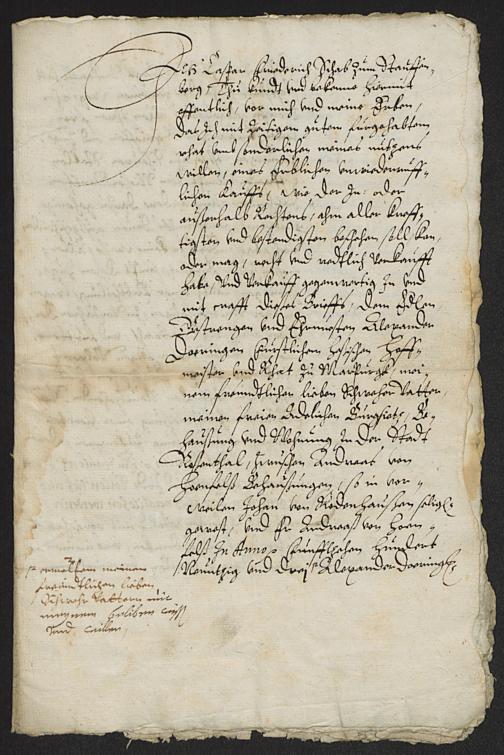 Ich Caspar Friederich Schab zum Stauffen-
berg, Thu kundt und bekenne hiermit
offentlich, vor mich und meine Erben,
das Ich mit zeitigen gutem furgehabtem
rhat umb sonderlichen meines nutzens
willen, eines Erblichen unwiederruff-
lichen Kauffs, wie der In oder
ausserhalb Rechtens, ahm aller kreff-
tigsten und bestendigsten beschehen soll kan,
oder mag, recht und redtlich Verkaufft
habe, Und Verkauff gegenwertig In und
mit crafft dieses Brieffs, dem Edlen
Gestrengen und Ehrnvesten Alexander
Doeringen Furstlichem Hessischen Hoff-
meister und Rhat zu Marpurgk, mei-
nem freundtlichen lieben Schweher Vatter,
meinen freien Adelichen Burgsitz, Be-
hausung und Wohnung In der Stadt
Rosenthal, zwischen Andreas von
Hoenfels Behausungen, so in vor-
weilen Johan von Rodenhausen selig
gewest, und Er Andreas von Hoen-
fels In Anno Funffzehen Hundert
Neuntzig und Drey Alexander Doering
meinem
freundtlichen lieben
Schwehr Vattern mit
meynem
und willen